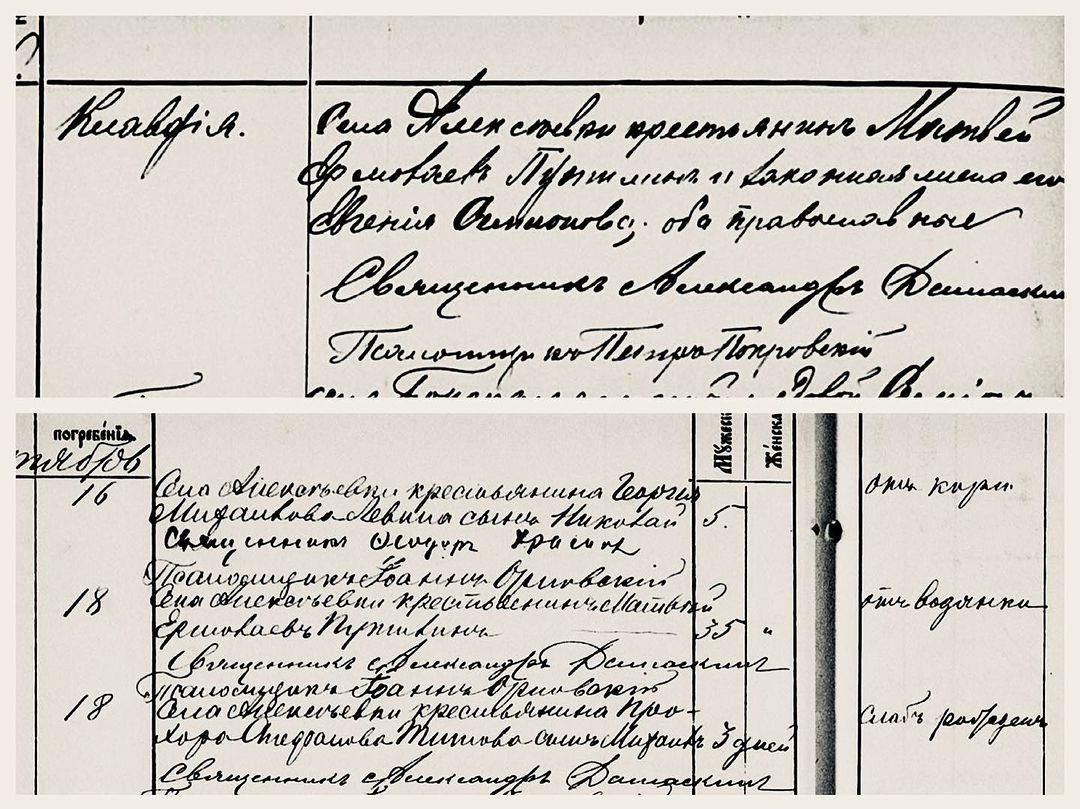 Клавдія.
Села Алексѣевки крестьянинъ Матвѣй
Ермолаевъ Пушилинъ и законная жена его
Евгенія Семионова; оба православные
Священникъ Александръ Дамаскин
Псаломщикъ Петръ Покровскій
погребенія.
Мужеск
Женска
16
Села Алексѣевки крестьянина Георгія
Михайлова Левина сынъ Николай
5.
отъ кори
Священникъ Ѳеодоръ
Псаломщикъ Іоаннъ Орловскій
18
Села Алексѣевки крестьянинъ Матвѣй
отъ водянки
Ермолаевъ
35
"
Священникъ Александръ Дамаскинъ
Псаломщикъ Іоаннъ Орловскій
18
Села Алексѣевки крестьянина Про-
слабъ рожденъ
хора Стефанова Титова сынъ Михаилъ
3 дней
Священникъ Александръ Дамаскинъ